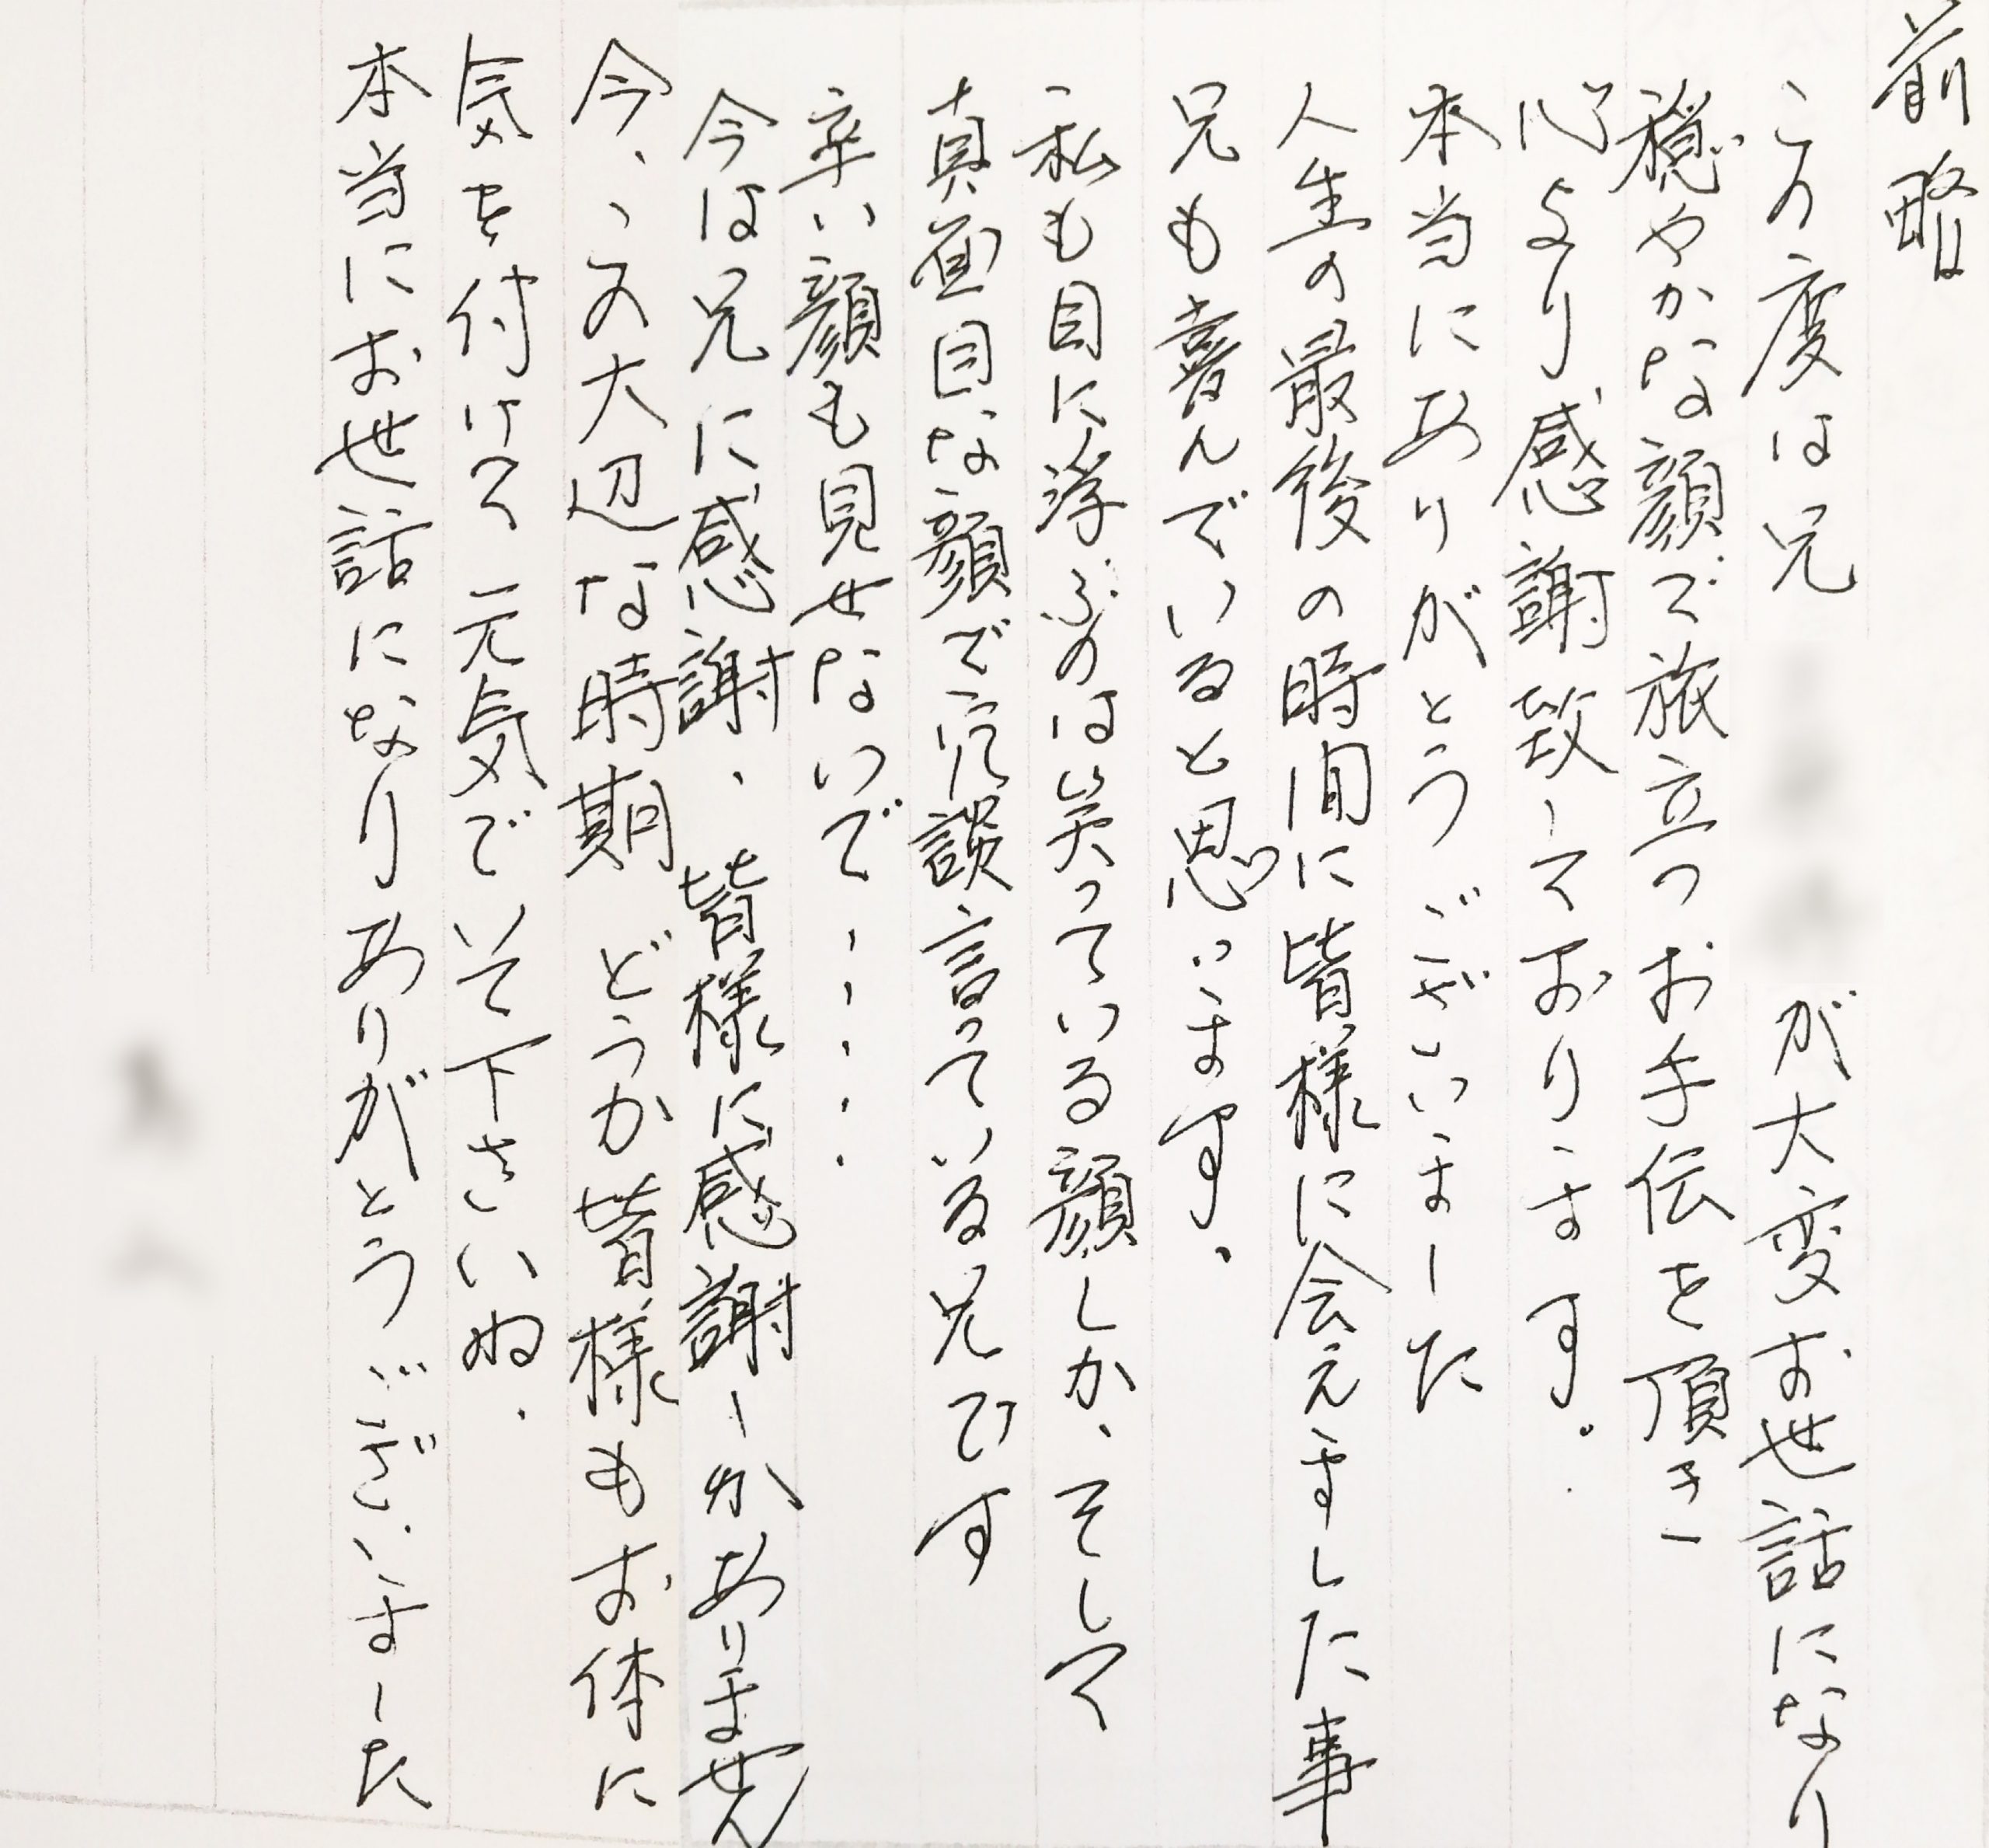 前略
この度は兄 が大変お世話になり
穏やかな顔で旅立つお手伝を頂き
心より感謝致しております。
本当にありがとうございました
人生の最後の時間に皆様に会えました事
兄も喜んでいると思います。
私も目に浮ぶのは笑っている顔しか、そして
真面目な顔で冗談言っている兄です
辛い顔も見せないで……
今は兄に感謝、皆様に感謝しかありません
今、この大辺な時期 どうか皆様もお体に
気を付けて元気でいて下さいね.
本当にお世話になりありがとうございました